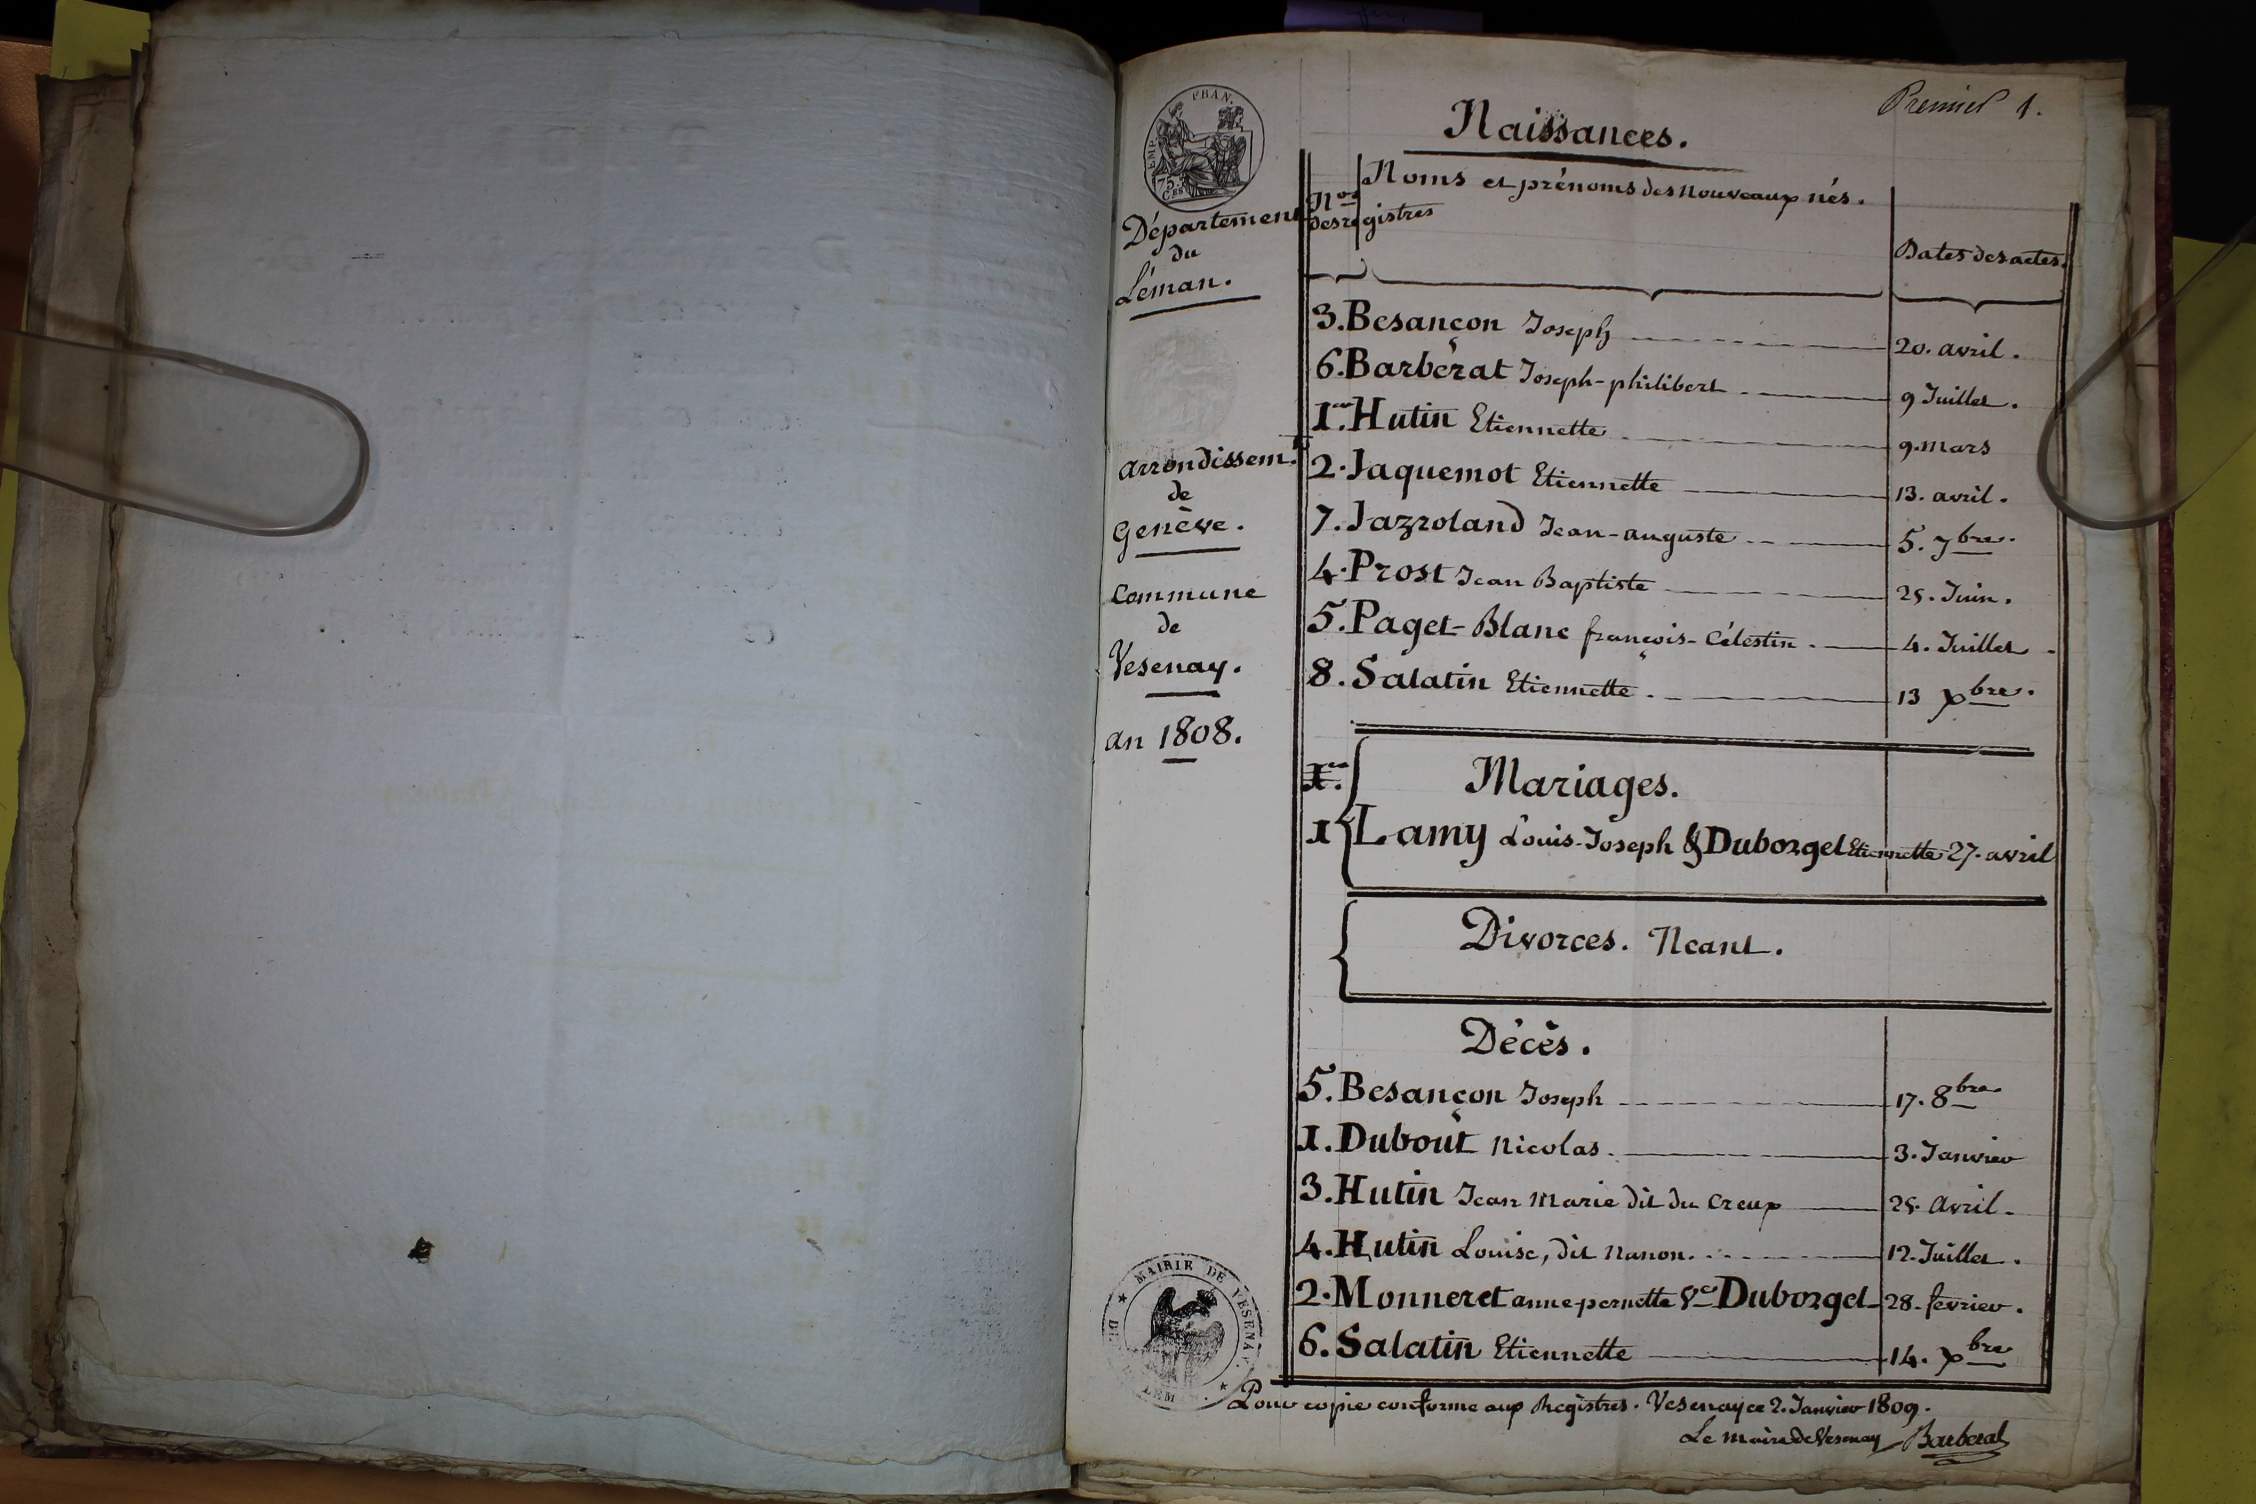 Premier 1.
EMP. FRAN.
75.
C.ES
Naissances.
Nos des registres
Noms et prénoms des nouveaux nés.
Dates des actes.
Département
du
Léman.
Arrondissem.t
de
Genève.
Commune
de
Vesenay.
an 1808.
3. Besançon Joseph 20. avril.
6. Barbérat Joseph-philibert 9 Juillet.
1er. Hutin Etiennette 9. mars
2. Jaquemot Etiennette 13. avril.
7. Jazroland Jean-auguste 5. 7bre.
4. Prost Jean Baptiste 25. Juin.
5. Paget-Blanc françois-Célestin 4. Juillet.
8. Salatin Etiennette 13 Xbre.
Mariages.
1 Lamy Louis-Joseph & Duborgel Etiennette 27. avril
Divorces. Neant.
Décès.
5. Besançon Joseph 17. 8bre.
1. Dubout Nicolas 3. Janvier
3. Hutin Jean Marie dit du Creux 25. Avril.
4. Hutin Louise, dit Nanon. 12. Juillet.
2. Monneret anne-pernette Ve Duborgel 28. fevrier.
6. Salatin Etiennette 14. Xbre
MAIRIE DE VESENAY
Pour copie conforme aux Registres. Vesenay ce 2. Janvier 1809.
Le Maire de Vesenay Barberat